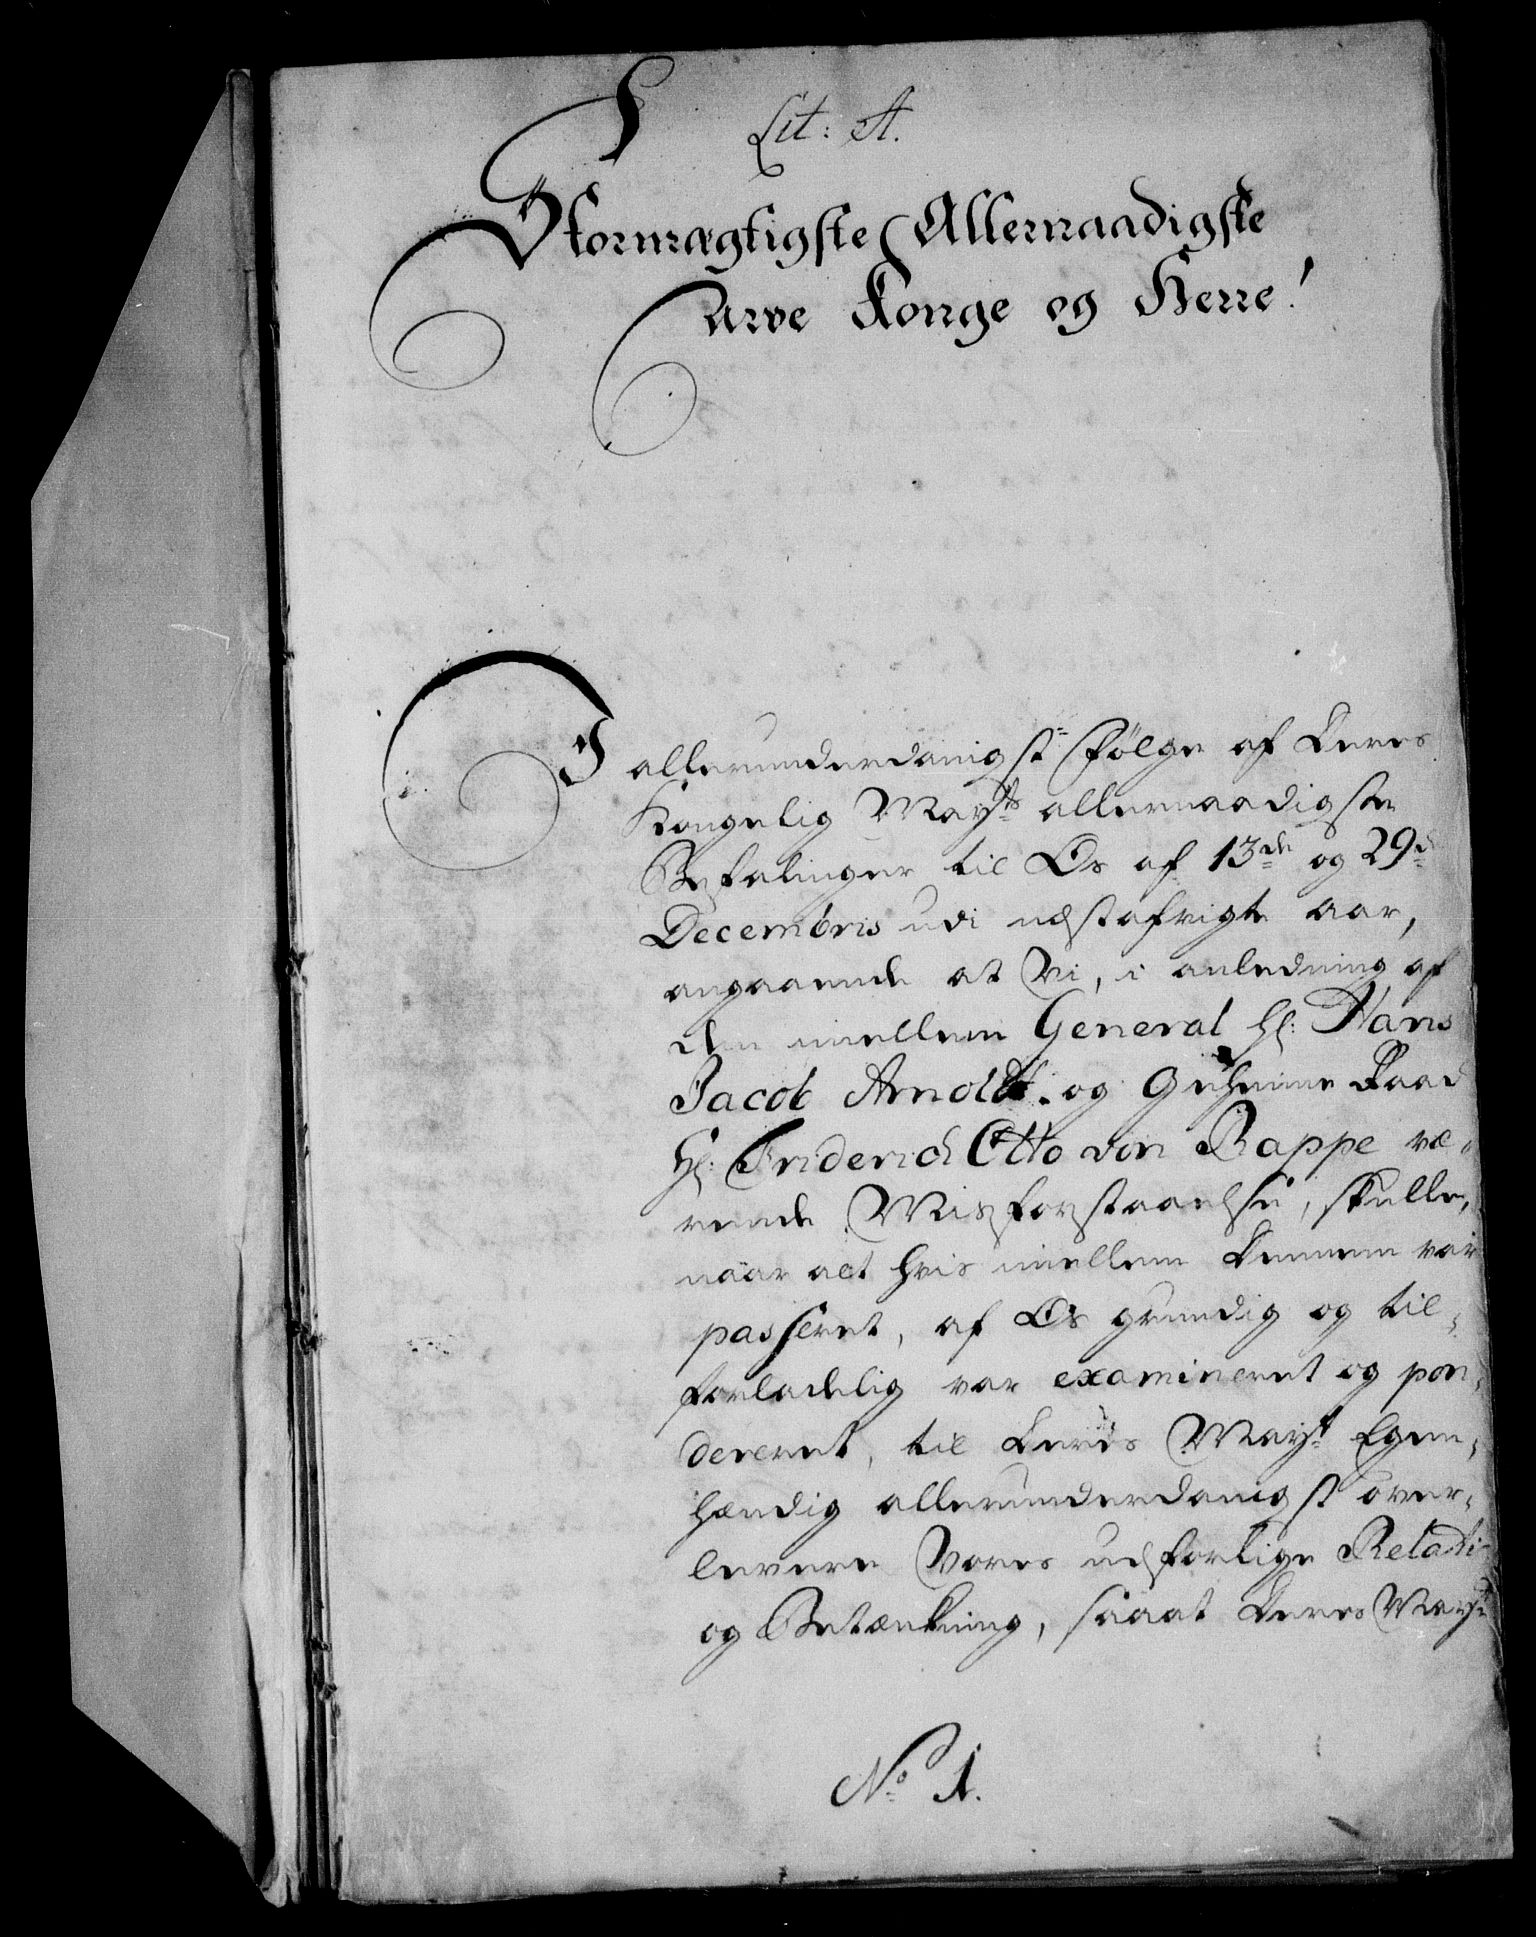 Lit: A.
Stormægtigste Allernaadigste
Arve Konge og Herre!
I allerunderdanigst Følge af Deres
Kongelig Mayts allernaadigste
Befalinger til Os af 13de og 29d
Decembris udi næstafvigte aar,
angaaende at Vi, i anledning af
den imellem General Hr: Hans
Jacob Arnoldt. og Geheime Raad
Hr: Friderich Otto von Rappe væ-
rende Misforstaaelse, skulle,
naar alt hvis imellem Dennem var
passeret, af Os grundig og til-
forladelig var examineret og pon-
dereret, til Deres Mayt Egen-
hændig allerunderdanigst over-
levere Vores udførlige Relati-
og Betænkning, saaat Deres Mayt
No 1.